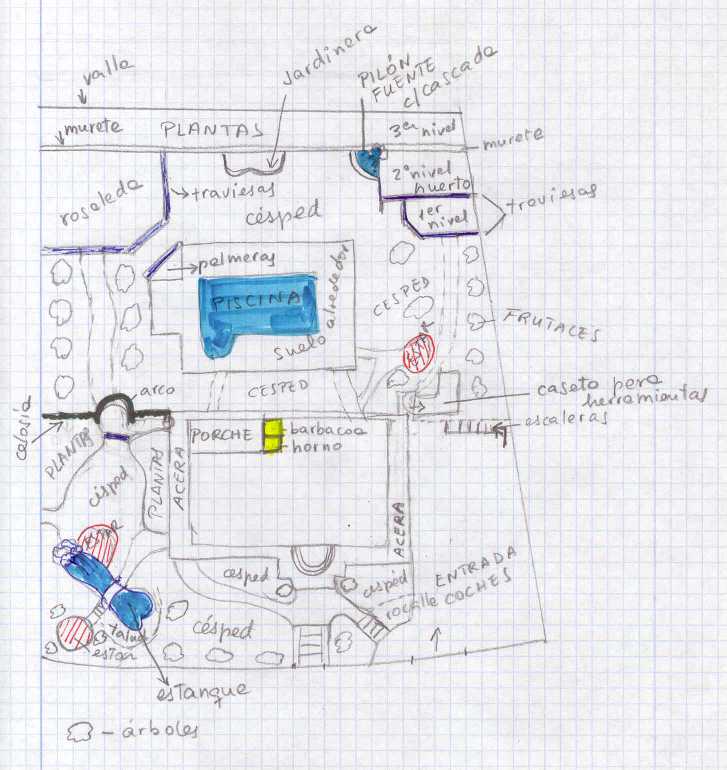 valla
jardinera
PILÓN
FUENTE
c/cascada
murete
PLANTAS
3er nivel
murete
rosaleda
traviesas
césped
2º nivel
huerto
1er
nivel
traviesas
palmeras
PISCINA
suelo alrededor
CESPED
FRUTALES
CESPED
arco
caseto para
herramientas
escaleras
celosía
PLANTAS
PORCHE
barbacoa
horno
césped
PLANTAS
ACERA
ACERA
ESTAR
césped
césped
ENTRADA
COCHES
rocalla
césped
talud
estar
estanque
- árboles